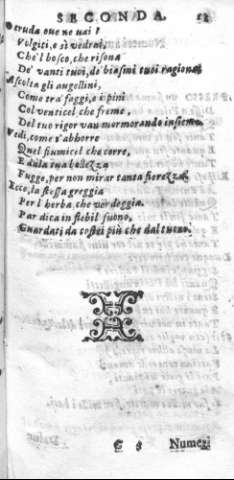 SECONDA. 52
O cruda oue ne vai?
Volgiti, e sì vedrai,
Che'l bosco, che risona
De' vanti tuoi, de' biasini tuoi ragiona,
Ascolta gli augellini,
Come tra faggi, e i pini
Col venticel, che freme,
Del tuo rigor van mormorando insieme.
Vedi, come t'abhorre
Quel fiumicel che corre,
E da la tua bellezza
Fugge, per non mirar tanta fierezza.
Ecco, la stessa greggia
Per l'herba, che verdeggia.
Par dica in flebil suono,
Guardati da costei più che dal tuono.
Numeri